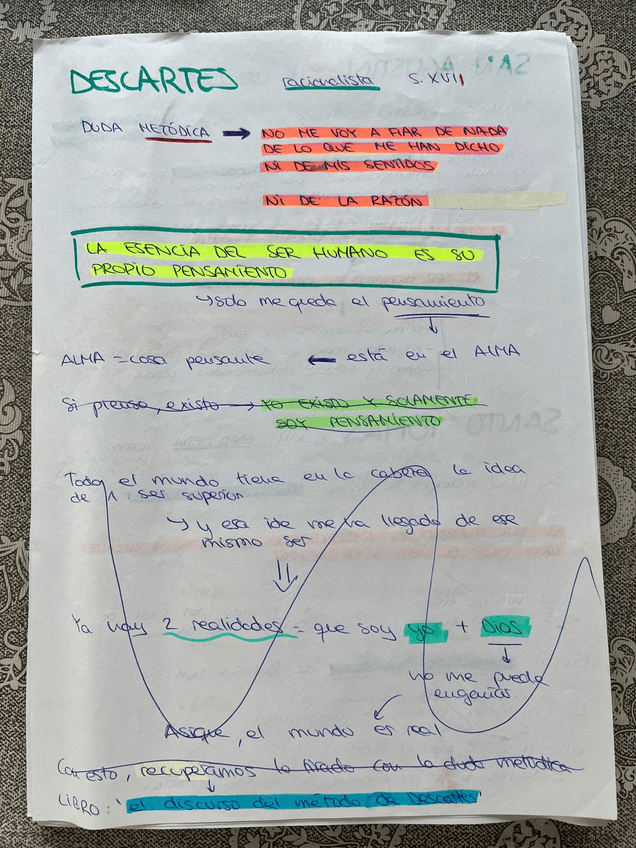 DESCARTES racionalista S. XVII
DUDA METÓDICA → NO ME VOY A FIAR DE NADA
DE LO QUE ME HAN DICHO
NI DE MIS SENTIDOS
NI DE LA RAZÓN
LA ESENCIA DEL SER HUMANO ES SU
PROPIO PENSAMIENTO
↳ solo me queda el pensamiento
↓
ALMA = cosa pensante ← está en el ALMA
Si pienso, existo → YO EXISTO Y SOLAMENTE
SOY PENSAMIENTO
Todo el mundo tiene en la cabeza la idea
de 1 ser superior
↳ y esa ide me ha llegado de ese
mismo ser
⇓
Ya hay 2 realidades = que soy yo + Dios
↓
no me puede
engañar
Asique, el mundo es real
Con esto, recuperamos lo tirado con la duda metódica
LIBRO: "el discurso del método de Descartes"